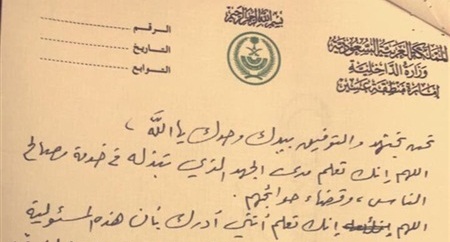 بسم الله الرحمن الرحيم
المملكة العربية السعودية
وزارة الداخلية
إمارة منطقة عسير
الرقم
التاريخ
التوابع
نحن نجتهد والتوفيق بيدك وحدك يا الله،
اللهم إنك تعلم مدى الجهد الذي نبذله في خدمة مصالح
الناس، وقضاء حوائجهم.
اللهم إنك تعلم أنني أدرك بأن هذه المسئولية